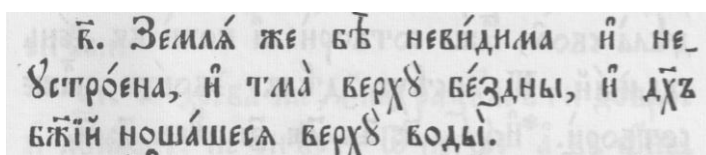 в҃. Землѧ́ же бѣ̀ неви́дима и҆ не_
ᲂу҆стро́ена, и҆ тма̀ верхꙋ̀ бе́здны, и҆ дх҃ъ
бж҃їй ноша́шесѧ верхꙋ̀ воды̀.